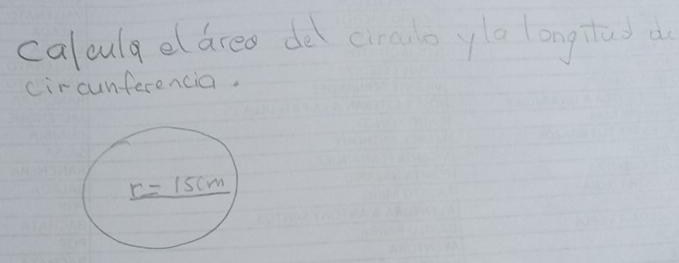 calcula el área del circulo y la longitud de
circunferencia.
r = 15cm